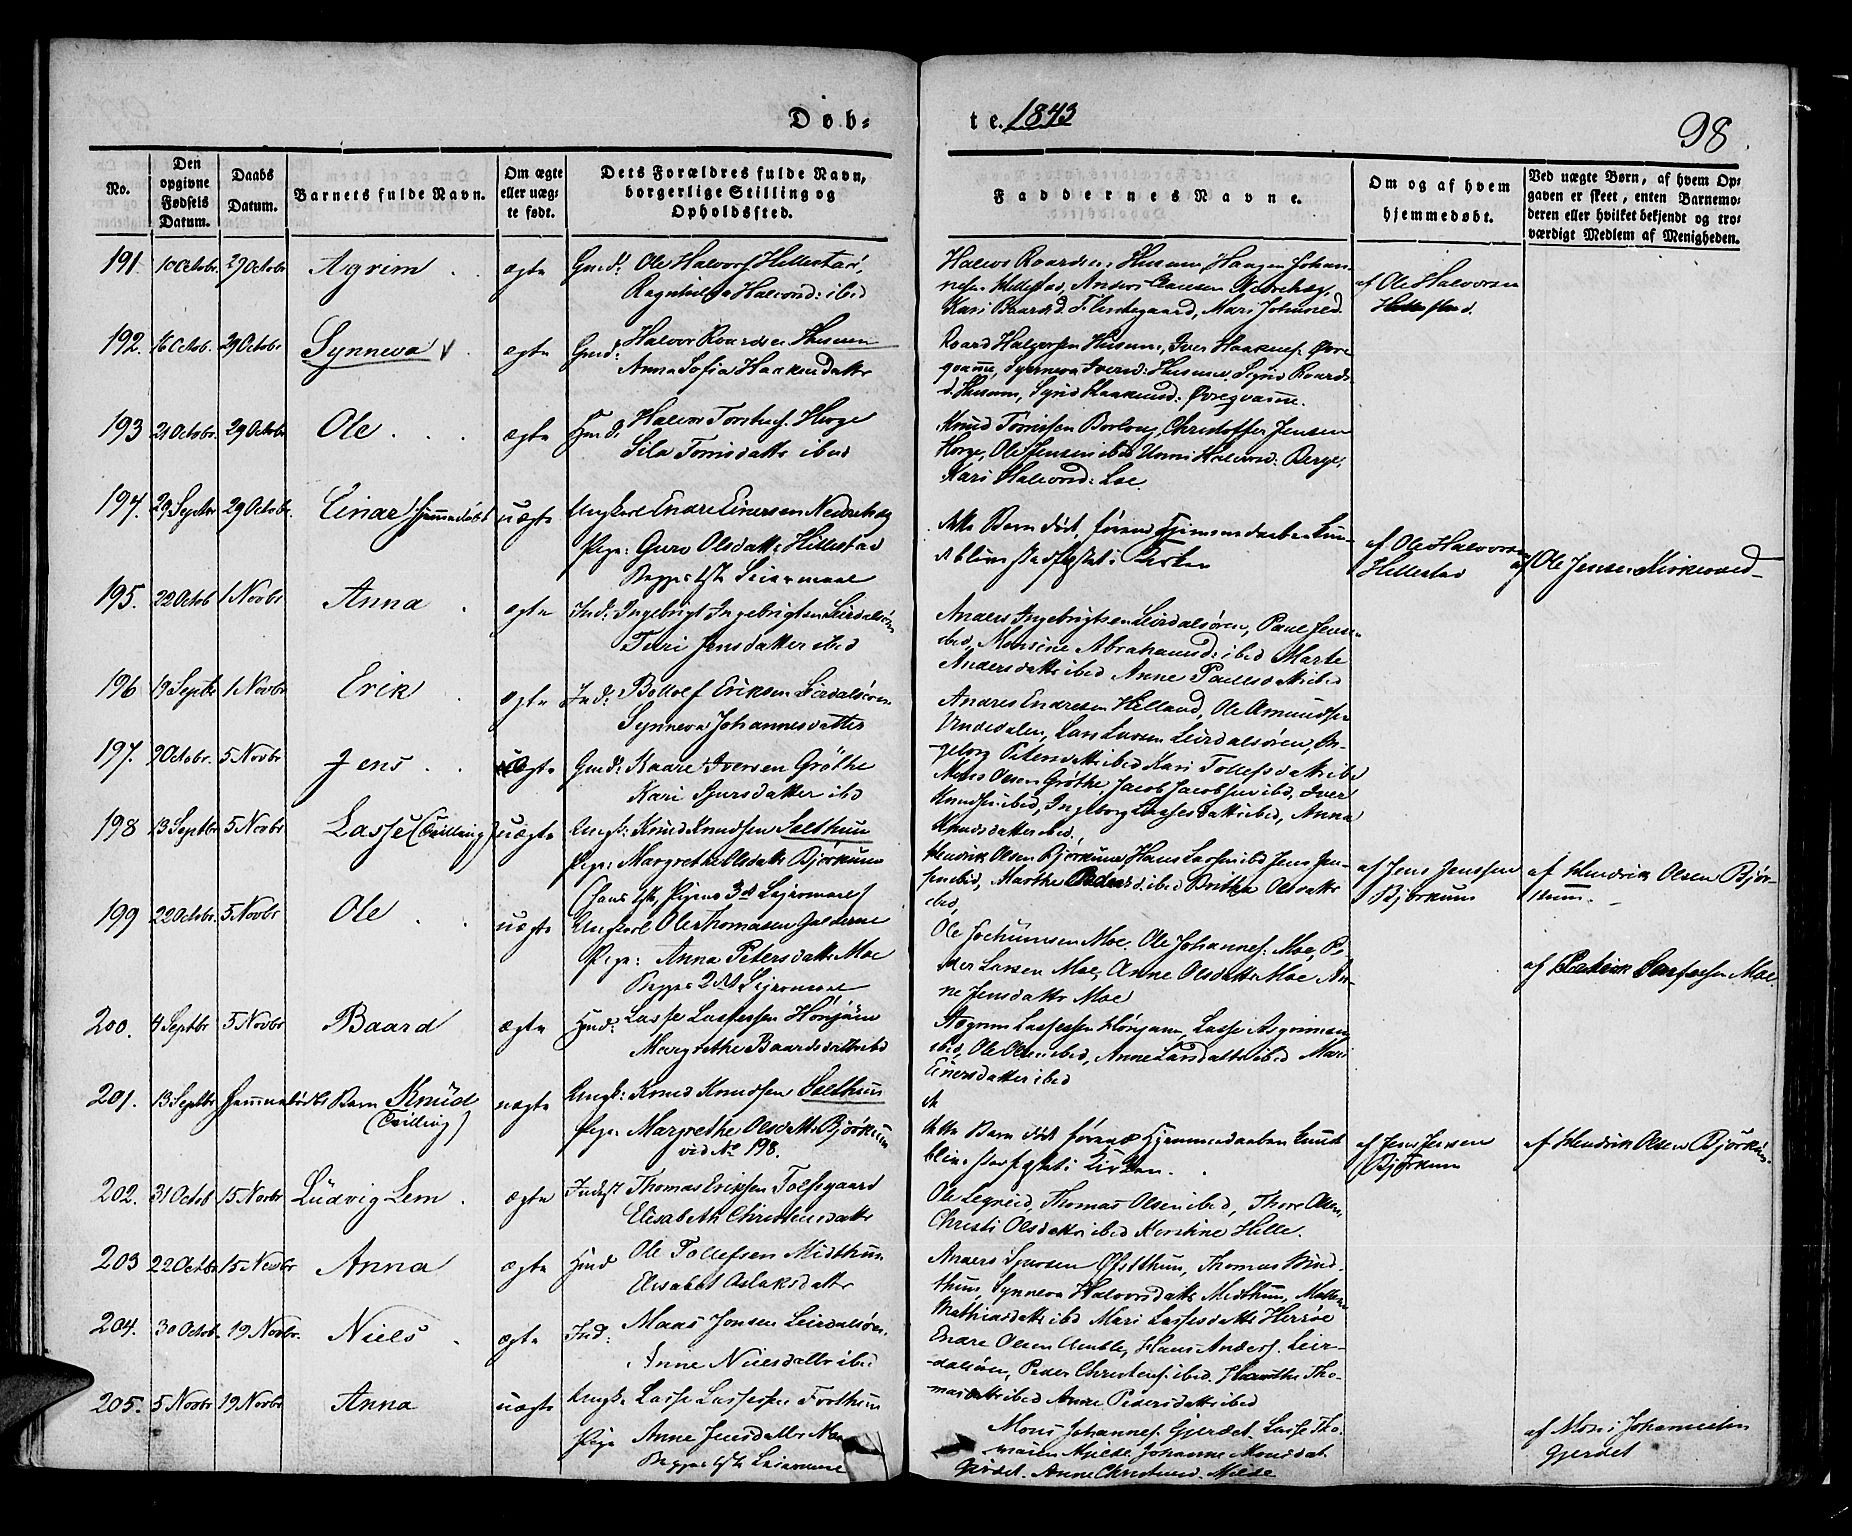 Døb-
te. 1843
98.
No.
Den opgivne Fødsels Datum.
Daabs Datum.
Barnets fulde Navn.
Om ægte eller uæg-te født.
Dets Forældres fulde Navn, borgerlige Stilling og Opholdssted.
Faddernes Navne.
Om og af hvem hjemmedøbt.
Ved uægte Børn, af hvem Op-gaven er skeet, enten Barnemo-deren eller hvilket bekjendt og tro-værdigt Medlem af Menigheden.
191. 10 Octobr 29 Octobr Agrim ægte Gmd: Ole Halvors Hillestad,
Ragnhilda Halvorsd: ibid
Halvor Roardsen Husum Haagen Johan-
nesen Hillestad, Anders Clausen Nedrehæg,
Kari Baardsd. Mari Johannesd.
af Ole Halvorsen
Hillestad.
192. 16 Octob. 29 Octobr Synneva ægte Gmd: Halvor Roardsen Husum
Anna Sofia Haakensdatter
Roard Halvorsen Husum, Iver Haakens. Øvre
qvamme, Synneva Iversd: Husum, Sigrid Roards
d. Husum, Sigrid Haakensd: Øvreqvamme.
193 21 Octobr. 29 Octobr Ole ægte Hmd: Halvor Torstens. Horge
Sila Tomisdattr ibid
Knud Tomissen Borlong, Christoffer Jensen
Horge, Ole Jensen ibid Halvorsd: Berge,
Kari Halvorsd: Loe
194. 29 Septbr 29 Octobr. Einar Hjemmedøbt uægte Ungkarl Endre Einersen Nedrehæg
Pige: Guro Olsdattr Hillestad
Begges 1ste Leiermaal
dette Barn død, førend Hjemmedaaben kun-
de blive stadfæstet i Kirken
af Ole Halvorsen
Hillestad
af Ole Jensen
195. 22 Octob 1 Novbr Anna ægte Ind: Ingebrigt Ingebrigtsen Leirdalsøren
Turi Jensdatter ibid
Anders Ingebrigtsen Leirdalsøren, Paul Jensen
ibid, Monsine Abrahamsd: ibid Marte
Andersdattr ibid Anne Paulsdattr ibid
196 19 Septbr 1 Novbr Erik ægte Ind: Botolf Eriksen Leirdalsøren
Synneva Johannesdatter
Anders Endresen Helland, Ole Amundsen
Undedalen, Lars Larsen Leirdalsøren, In-
geborg Petersdattr ibid Kari Tollefsdattr ibid
197. 9 Octobr. 5 Novbr Jens ægte Gmd: Kaare Iversen Grøthe
Kari Sjursdatter ibid
Mons Olsen Grøthe, Jacob Jacobsen ibid, Iver
Knudsen ibid, Ingeborg Lassesdattr ibid, Anna
Knudsdatter ibid.
198 13 Septbr 5 Novbr Lasse (Tvilling) uægte Ungk: Knud Knudsen Solthun
Pige: Margrethe Olsdattr Bjørkum
(hans 1ste, Pigens 3de Leiermaal)
Hendrik Olsen Bjørkum Hans Larsen ibid Jens Jen-
sen ibid, Marthe Pedersd ibid Britha Olsdattr
ibid,
af Jens Jenssen
Bjørkum
af Hendrik Olsen Bjør-
kum.
199 22 Octobr. 5 Novbr Ole uægte Ungkarl Ole Thomasen Galderne
Pige: Anna Petersdattr Moe
Begges 2det Leiermaal
Ole Jochumsen Moe, Ole Johannes. Moe, Pe-
der Larsen Moe, Anne Olsdattr Moe An-
ne Jensdattr Moe
200. 4 Septbr 5 Novbr Baard ægte Hmd: Lasse Lassessen Hønjum
Margrethe Baardsdattr ibid
Asgrim Lassessen Hønjum, Lasse Asgrimsen
ibid, Ole Olsen ibid, Anne Larsdattr ibid Mari
Einersdatter ibid
201. 13 Septbr Hjemmedøbt Barn Knud (Tvilling) uægte Ungk: Knud Knudsen Solthun
Pige Margrethe Olsdattr Bjørkum
vid No 198.
dette Barn død førend Hjemmedaaben kunde
blive stadfæstet i Kirken.
af Jens Jensen
Bjørkum
af Hendrik Olsen Bjørkum.
202. 31 Octob 15 Novbr Ludvig Lem ægte Indrst Thomas Eriksen Toftegaard
Elisabeth Christensdattr
Ole Legreid, Thomas Olsen ibid, Thore Olsen,
Christi Olsdattr ibid Kerstine Hille.
203 22 Octobr 15 Novbr Anna ægte Hmd Ole Tollefsen Midthun
Elisabet Aslaksdattr
Anders Sjursen Øfsthun, Thomas Mid-
thun, Synneva Halvorsdattr Midthun,
Mathiasdattr ibid Mari Lassesdattr Hersøe
204. 30 Octob. 19 Novbr. Niels ægte Ind: Maas Jonsen Leirdalsøren,
Anne Nielsdattr ibid
Endre Olsen Amble, Hans Anders. Leir-
dalsøren, Peder Christens. ibid, Marthe Tho-
masdattr ibid Anne Pedersdattr ibid
205. 5 Novbr 19 Novbr Anna uægte Ungk. Lasse Lassessen Forthun
Pige Anne Jensdattr
Begges 1ste Leiermaal
Mons Johannes. Gjerdet, Lasse Tho-
masen Mjelde, Johanne Monsdat
Gjerdet. Anne Christensd. Mjelde
af Mons Johannesen
Gjerdet